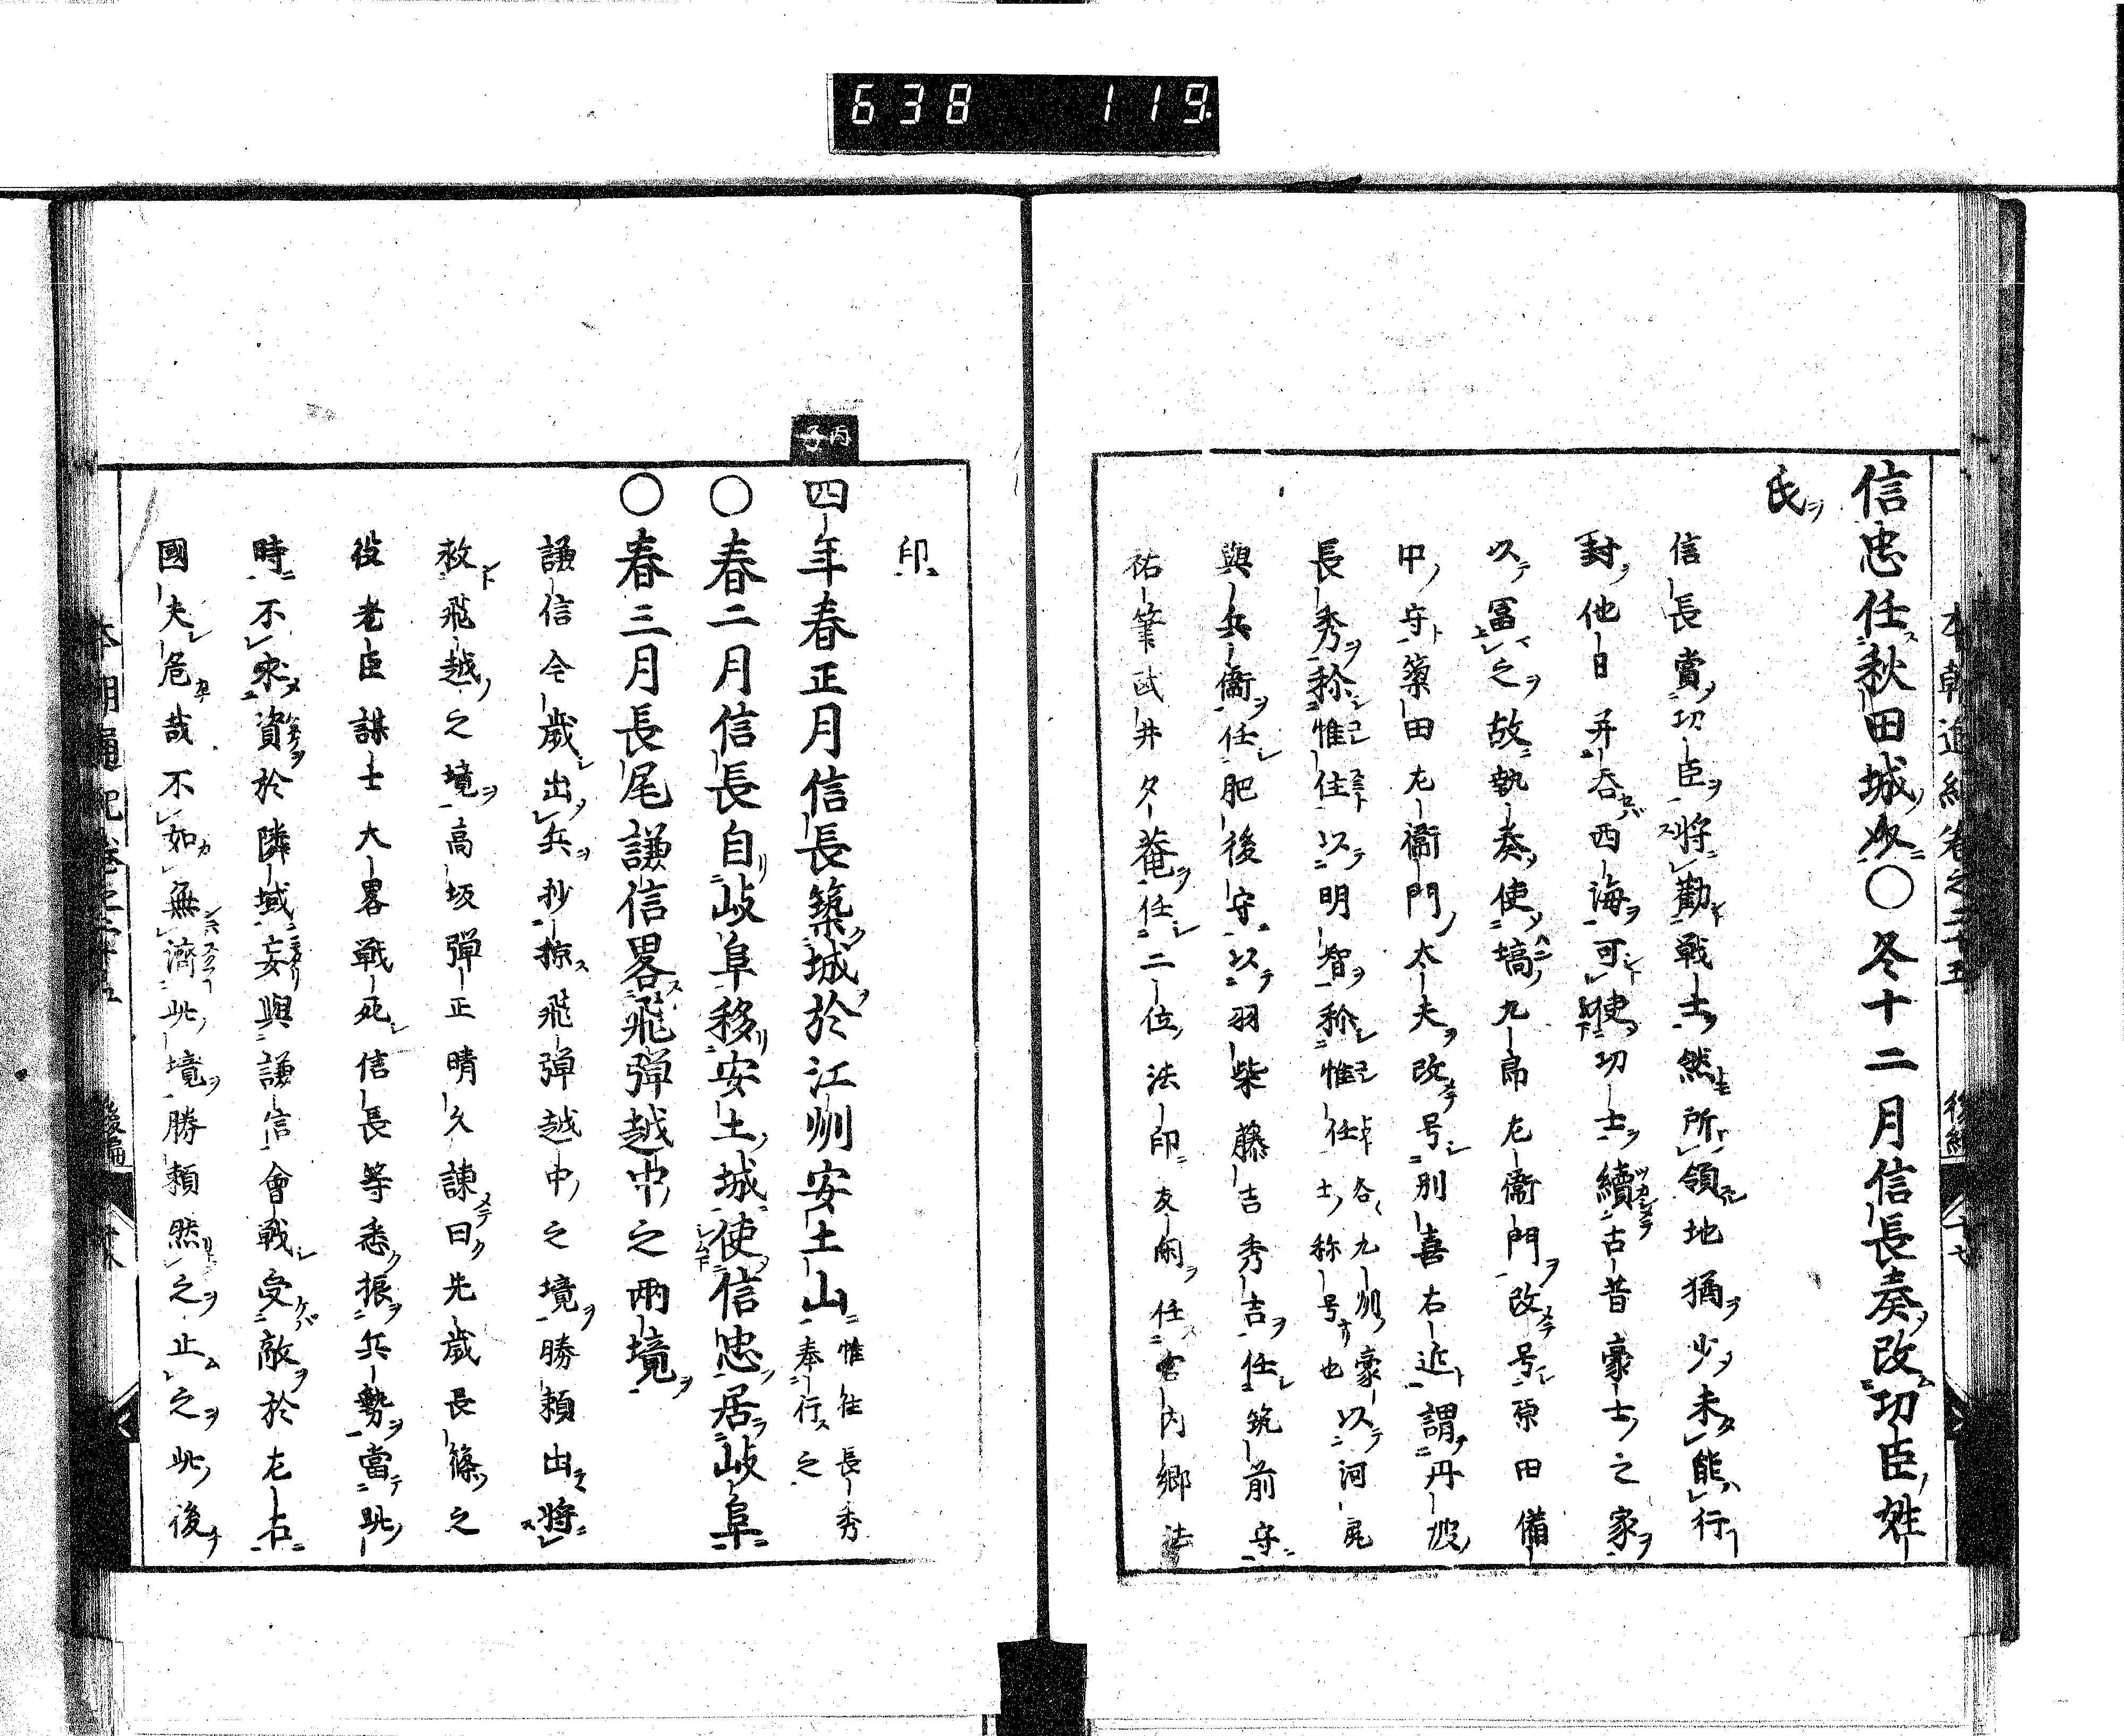 638 119
本朝通紀卷之二十五 後編 十七
信忠任秋田城介〇冬十二月信長奏改功臣姓
氏
信長賞功臣將勸戰士然所領地猶少未能行
封他日并吞西海可使功士續古昔豪士之家
以冨之故執奏使塙九郎左衞門改号原田備
中守簗田左衞門太夫改号別喜右近謂丹波
長秀称惟住以明智称惟任各九州豪士称号也以河尻
與兵衞任肥後守以羽柴藤吉秀吉任筑前守
祐筆武井夕菴任二位法印友閑任宮内卿法
印
丙子
四年春正月信長築城於江州安土山惟住長秀奉行之
〇春二月信長自岐阜移安土城使信忠居岐阜
〇春三月長尾謙信畧飛彈越中之兩境
謙信今歲出兵抄掠飛彈越中之境勝頼出將
救飛越之境高坂彈正晴久諫曰先歲長篠之
役老臣謀士大畧戰死信長等悉振兵勢當此
時不求資於隣域妄與謙信會戰受敵於左右
國夫危哉不如無濟此境勝頼然之止之此後
本朝通紀卷之二十五 後編